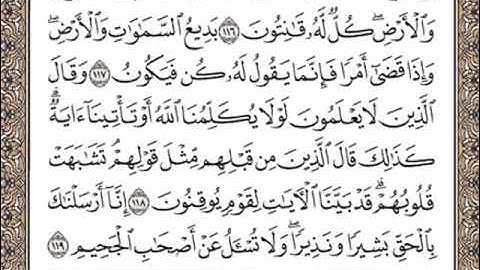 وَٱلْأَرْضِۖ كُلٌّ لَّهُۥ قَـٰنِتُونَ ١١٦ بَدِيعُ ٱلسَّمَـٰوَٰتِ وَٱلْأَرْضِۖ
وَإِذَا قَضَىٰٓ أَمْرًا فَإِنَّمَا يَقُولُ لَهُۥ كُن فَيَكُونُ ١١٧ وَقَالَ
ٱلَّذِينَ لَا يَعْلَمُونَ لَوْلَا يُكَلِّمُنَا ٱللَّهُ أَوْ تَأْتِينَآ ءَايَةٌۗ
كَذَٰلِكَ قَالَ ٱلَّذِينَ مِن قَبْلِهِم مِّثْلَ قَوْلِهِمْۘ تَشَـٰبَهَتْ
قُلُوبُهُمْۗ قَدْ بَيَّنَّا ٱلْـَٔايَـٰتِ لِقَوْمٍ يُوقِنُونَ ١١٨ إِنَّآ أَرْسَلْنَـٰكَ
بِٱلْحَقِّ بَشِيرًا وَنَذِيرًاۖ وَلَا تُسْـَٔلُ عَنْ أَصْحَـٰبِ ٱلْجَحِيمِ ١١٩